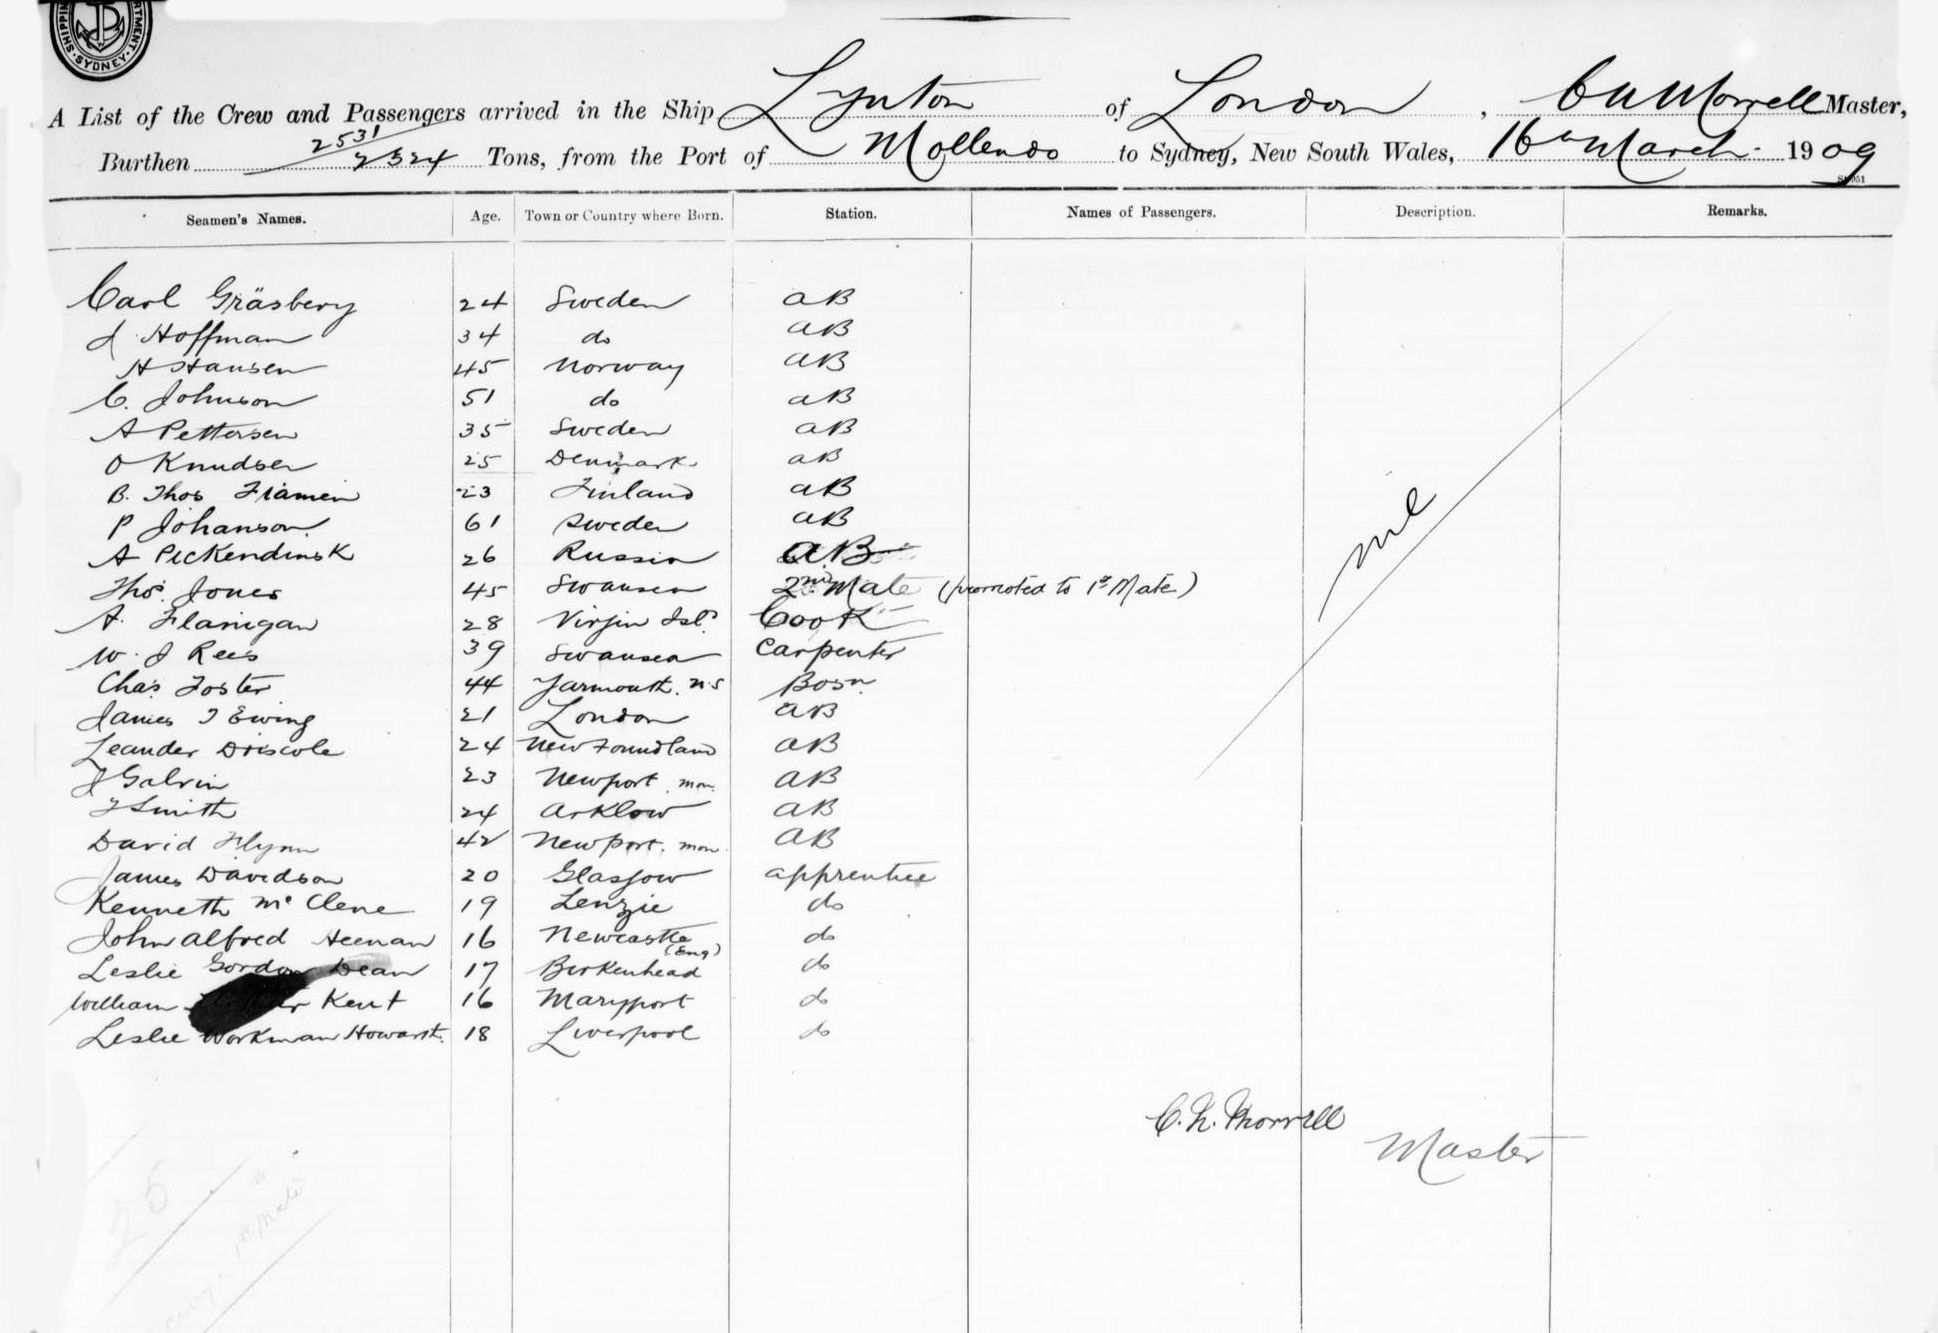 SHIPPING DEPARTMENT SYDNEY
A List of the Crew and Passengers arrived in the Ship Lynton of London, C N Morrell Master,
Burthen 2531 2324 Tons, from the Port of Mollendo to Sydney, New South Wales, 16th March 1909
Seamen's Names. Age. Town or Country where Born. Station. Names of Passengers. Description. Remarks.
Carl Gräsberg 24 Sweden AB
J Hoffman 34 do AB
H Hansen 45 Norway AB
C. Johnson 51 do AB
A Pettersen 35 Sweden AB
O Knudsen 25 Denmark AB
B. Thos 23 Finland AB
P Johanson 61 Sweden AB
A Pickendinsk 26 Russia AB
Thos. Jones 45 Swansea 2nd Mate (promoted to 1st Mate)
A. Flanigan 28 Virgin Isl. Cook
W. J Rees 39 Swansea Carpenter
Chas Foster 44 Yarmouth. N.S Bosn
James T Ewing 21 London AB
Leander Driscole 24 Newfoundland AB
J Galvin 23 Newport mon. AB
T Smith 24 Arklow AB
David Flynn 42 Newport. mon. AB
James Davidson 20 Glasgow apprentice
Kenneth Mc Clene 19 Lenzie do
John Alfred Heenan 16 Newcastle (Eng) do
Leslie Gordon Dean 17 Birkenhead do
William Kent 16 Maryport do
Leslie Workman Howarth. 18 Liverpool do
nil
C. N. Morrell
Master
25
1st Mate